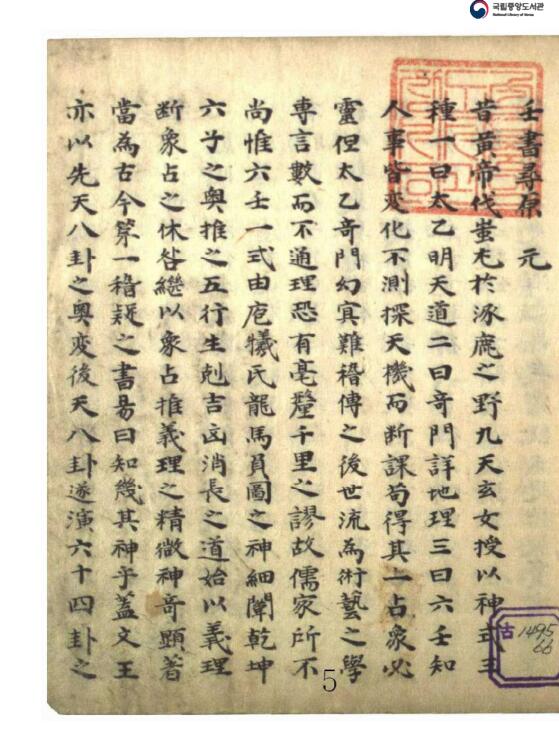 국립중앙도서관
National Library of Korea
壬書尋原 元
昔黃帝伐蚩尤於涿鹿之野九天玄女授以神式三
種一曰太乙明天道二曰竒門詳地理三曰六壬知
人事皆変化不測探天機而断課苟得其一占象必
靈但太乙竒門幻㝠難稽傳之後世流為術藝之學
專言數而不通理恐有毫釐千里之謬故儒家所不
尚惟六壬一式由庖犧氏龍馬負圖之神細闡乾坤
六子之奥推之五行生剋吉凶消長之道始以義理
断象占之休咎繼以象占推義理之精微神竒顯著
當為古今第一稽疑之書易曰知幾其神乎蓋文王
亦以先天八卦之奥変後天八卦遂演六十四卦之
古
1495
66
5